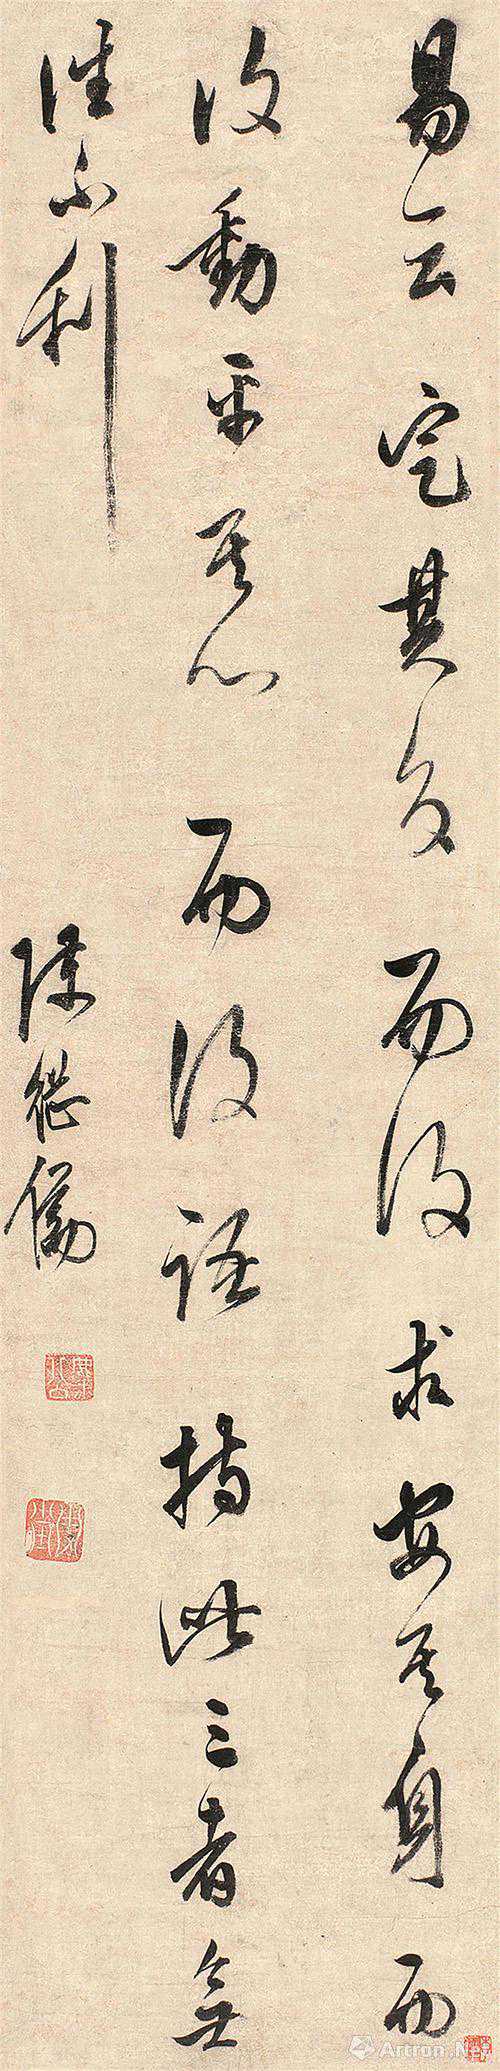 易云定其交而後求安其身而
後動平其心而後語持此三者無
往不利
陳繼儒
Artron.Net